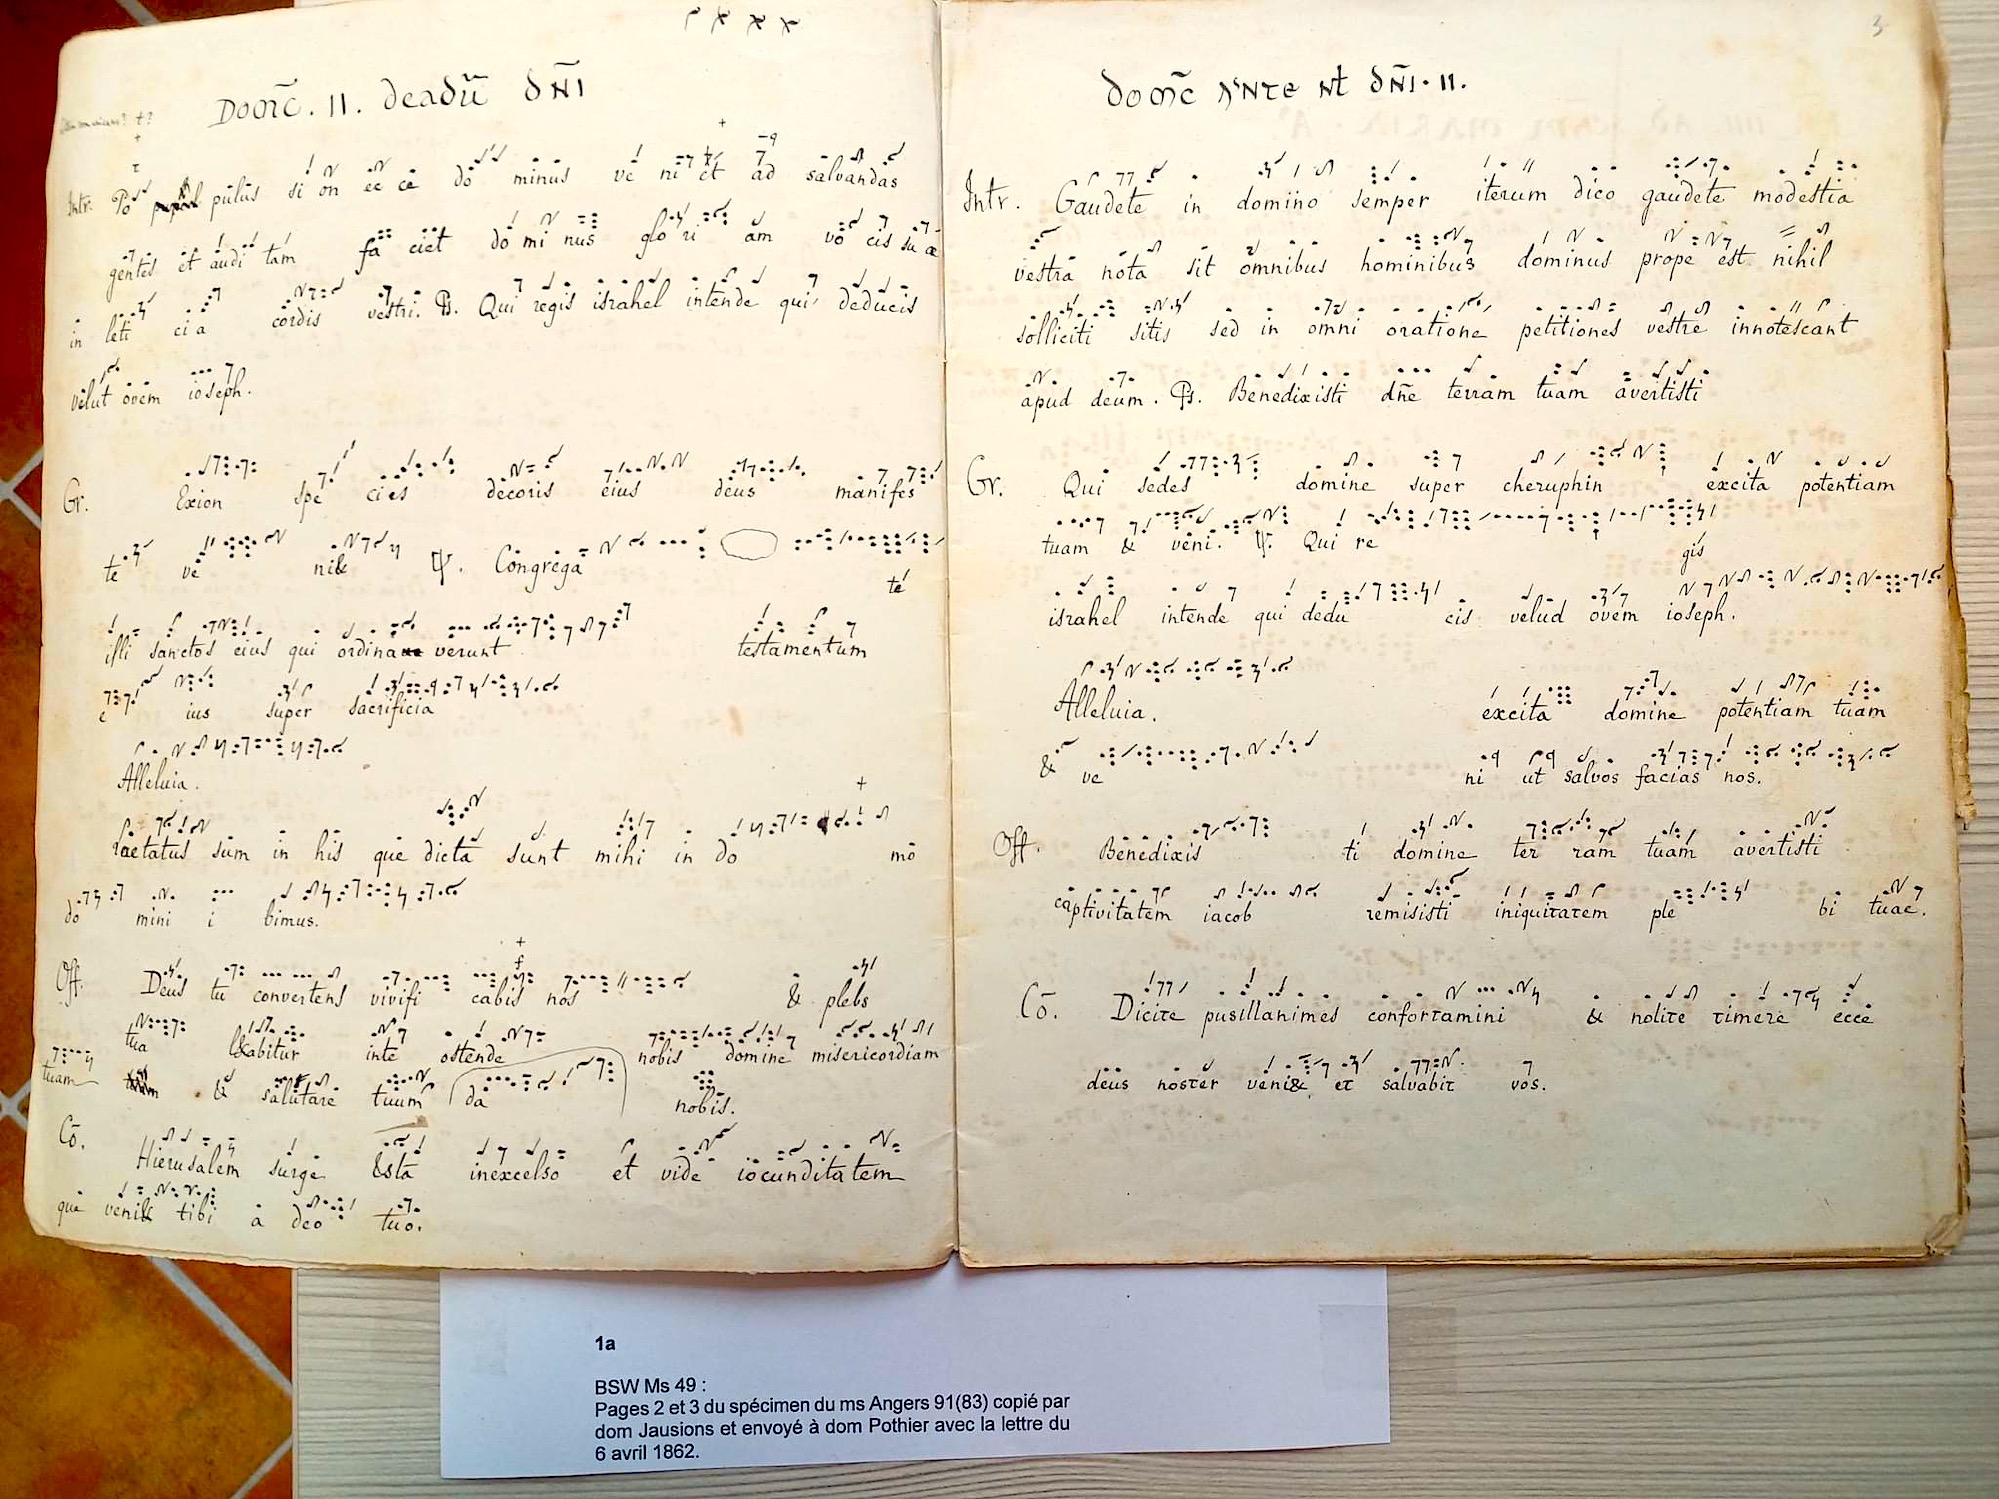 Domc̄. II. deadū dn̄i
Intr. Po pulus si on ec ce do minus ve ni et ad salvandas
gentes et audi tam fa ciet do mi nus glo ri am vo cis su æ
in leti ci a cordis vestri. Ps. Qui regis israhel intende qui deducis
velut ovem ioseph.
Gr. Exion spe cies decoris eius deus manifes
te ve ni& ℣. Congrega te
illi sanctos eius qui ordina verunt testamentum
e ius super sacrificia
Alleluia.
Laetatus sum in his que dicta sunt mihi in do mo
do mini i bimus.
Off. Deus tu convertens vivifi cabis nos & plebs
tua l&abitur inte ostende nobis domine misericordiam
tuam & salutare tuum da nobis.
Cō. Hierusalem surge &sta inexcelso et vide iocundita tem
que veni& tibi a deo tuo.
3
domc̄ ante nt dn̄i. II.
Intr. Gaudete in domino semper iterum dico gaudete modestia
vestra nota sit omnibus hominibus dominus prope est nihil
solliciti sitis sed in omni oratione petitiones vestre innotescant
apud deum. Ps. Benedixisti dn̄e terram tuam avertisti
Gr. Qui sedes domine super cheruphin excita potentiam
tuam & veni. ℣. Qui re gis
israhel intende qui dedu cis velud ovem ioseph.
Alleluia. excita domine potentiam tuam
& ve ni ut salvos facias nos.
Off. Benedixis ti domine ter ram tuam avertisti
captivitatem iacob remisisti iniquitatem ple bi tuae.
Cō. Dicite pusillanimes confortamini & nolite timere ecce
deus noster veni& et salvabit vos.
1a
BSW Ms 49 :
Pages 2 et 3 du spécimen du ms Angers 91(83) copié par
dom Jausions et envoyé à dom Pothier avec la lettre du
6 avril 1862.